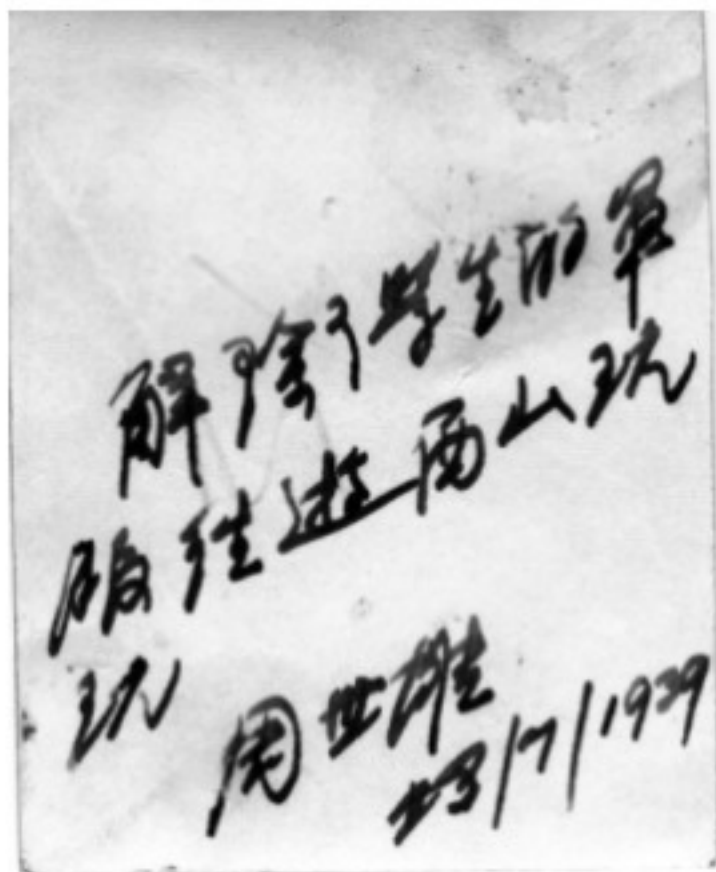 解除了學生的軍
服往遊西山玩
玩
周世雄
23/7/1939